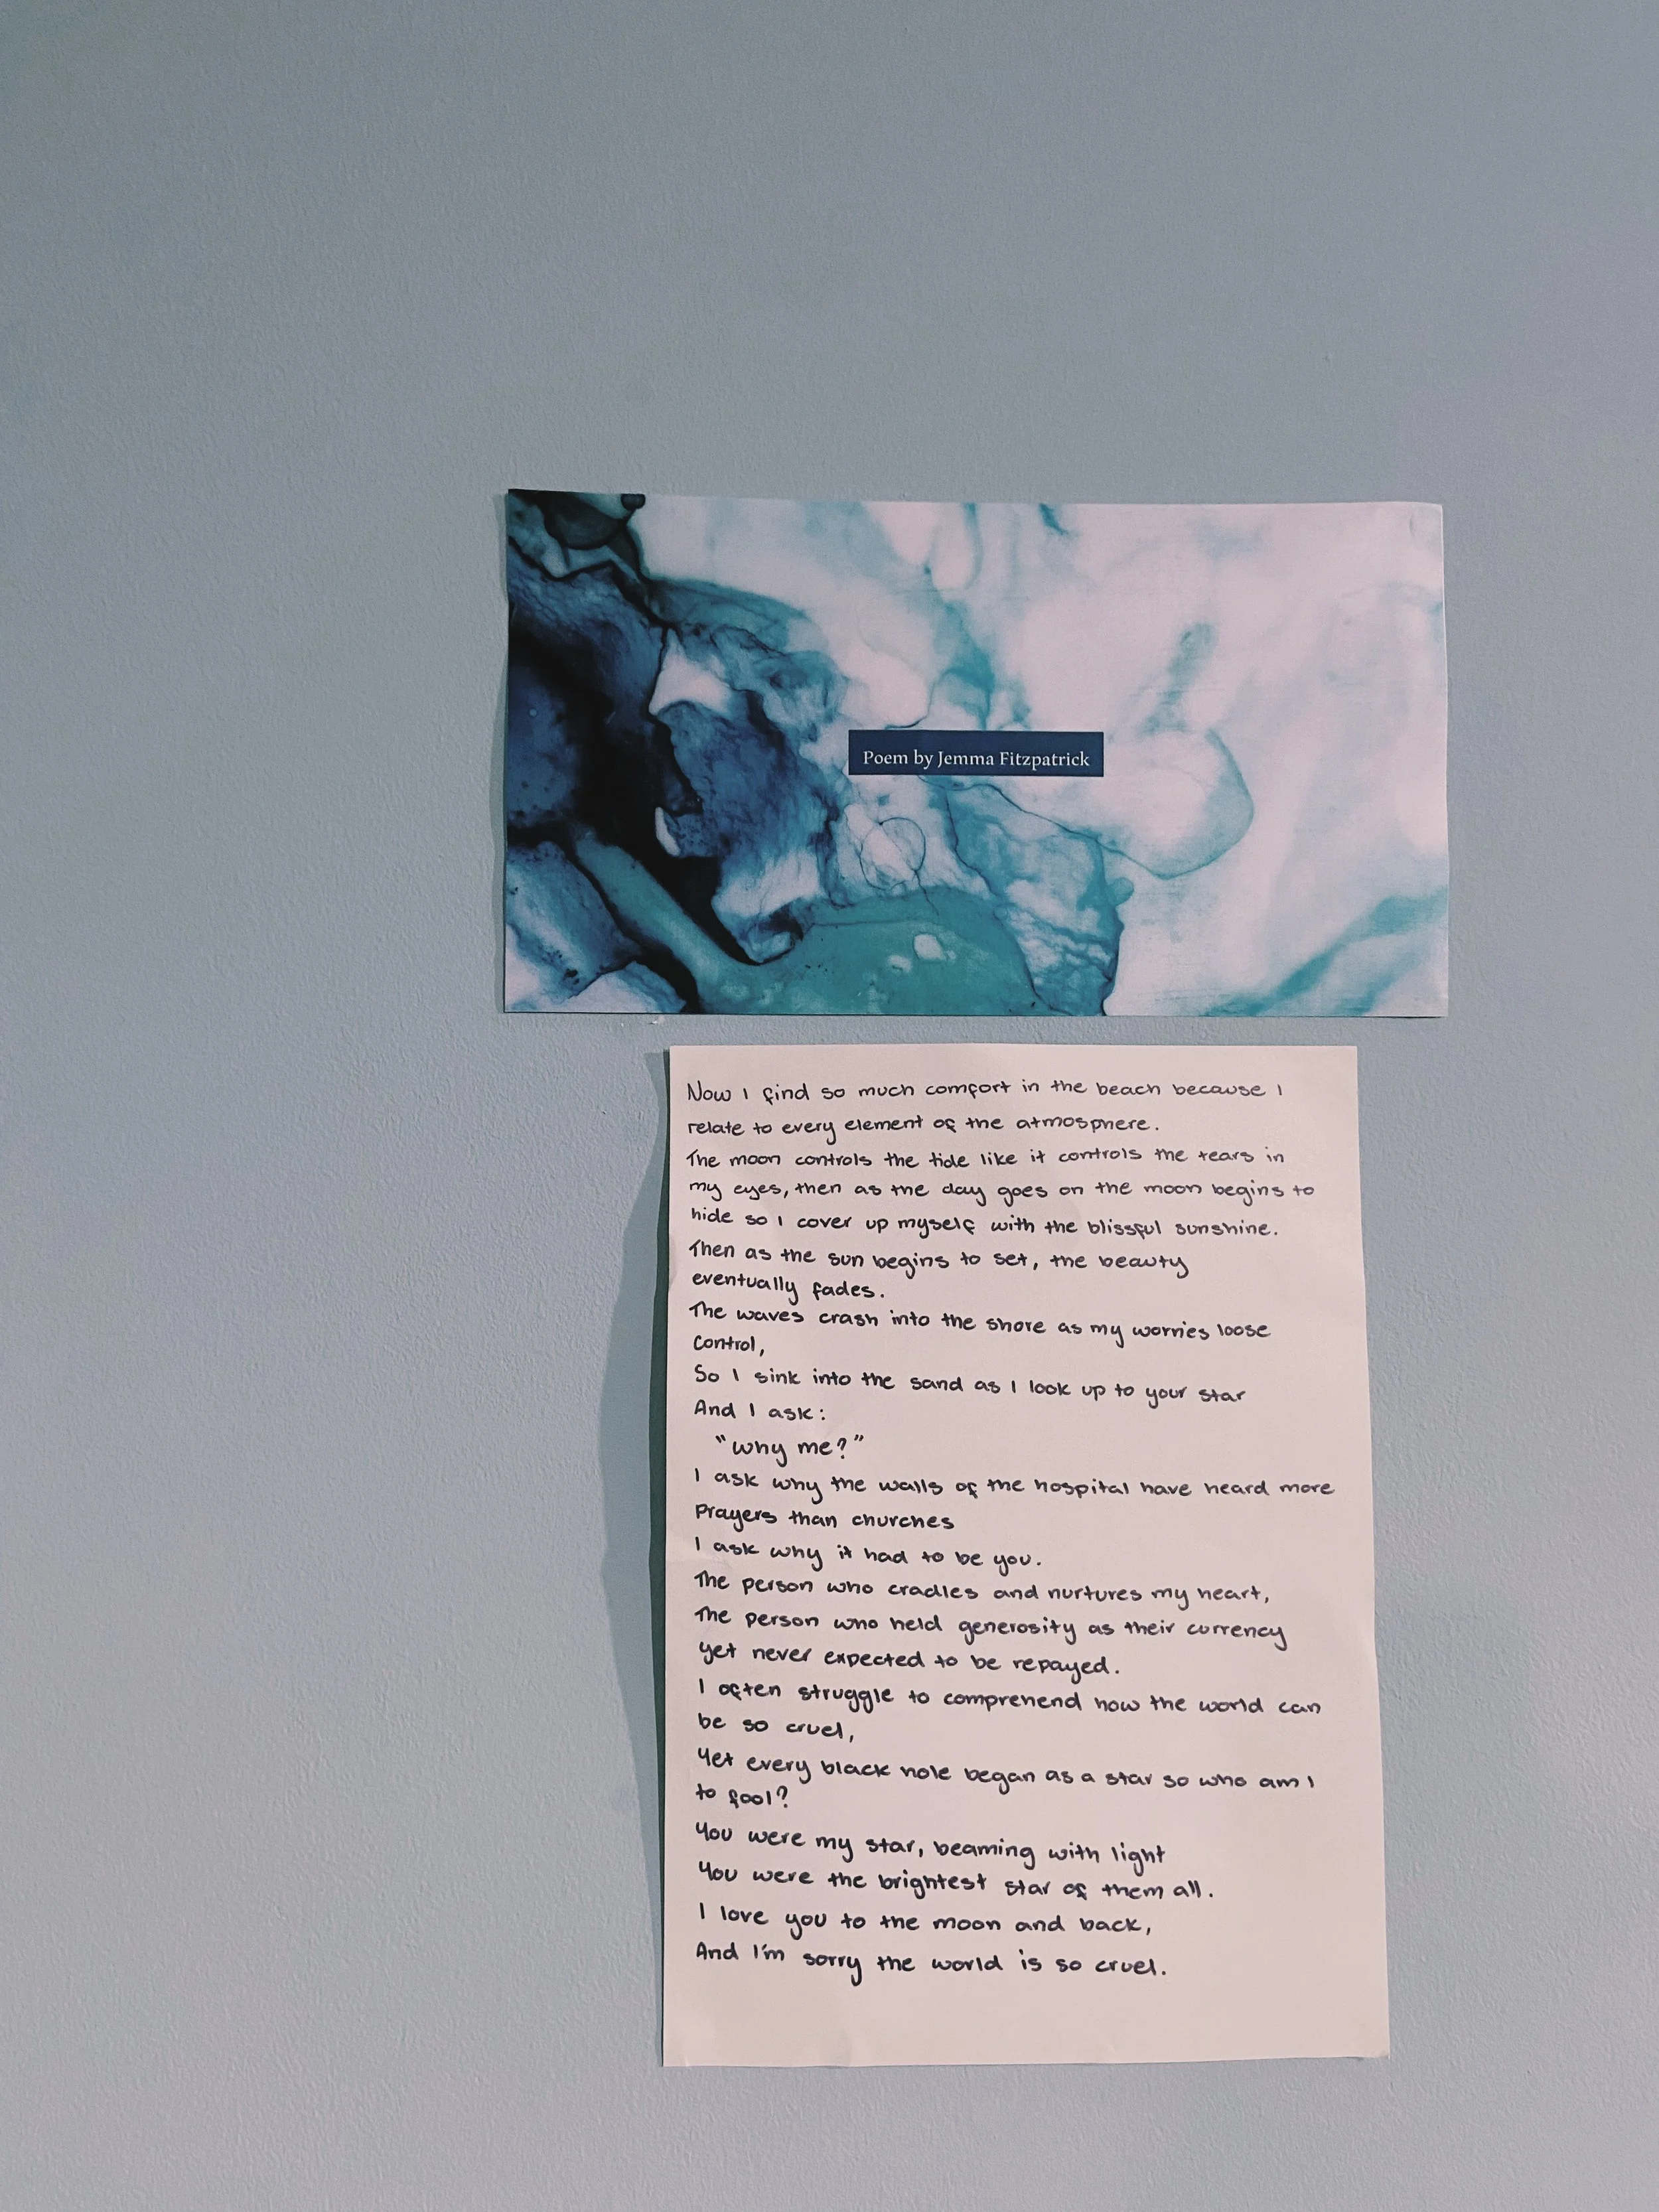 Poem by Jemma Fitzpatrick
Now I find so much comfort in the beach because I
relate to every element of the atmosphere.
The moon controls the tide like it controls the tears in
my eyes, then as the day goes on the moon begins to
hide so I cover up myself with the blissful sunshine.
Then as the sun begins to set, the beauty
eventually fades.
The waves crash into the shore as my worries loose
control,
So I sink into the sand as I look up to your star
And I ask:
"why me?"
I ask why the walls of the hospital have heard more
Prayers than churches
I ask why it had to be you.
The person who cradles and nurtures my heart,
The person who held generosity as their currency
yet never expected to be repayed.
I often struggle to comprehend how the world can
be so cruel,
Yet every black hole began as a star so who am I
to fool?
You were my star, beaming with light
You were the brightest star of them all.
I love you to the moon and back,
And I'm sorry the world is so cruel.